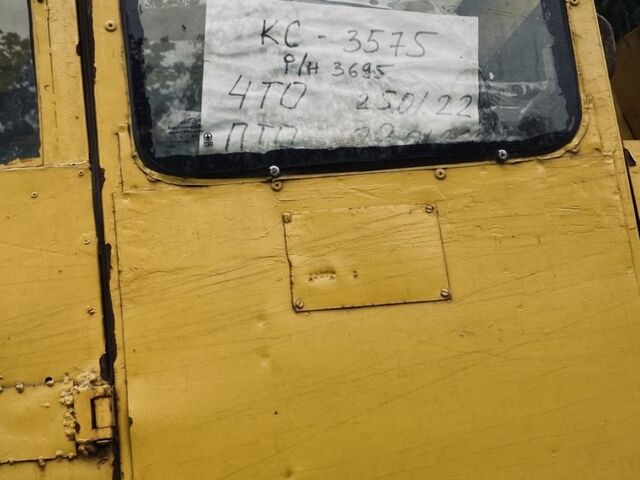 КС - 3575
Р/Н 3695
ЧТО 25.01.22
ПТО